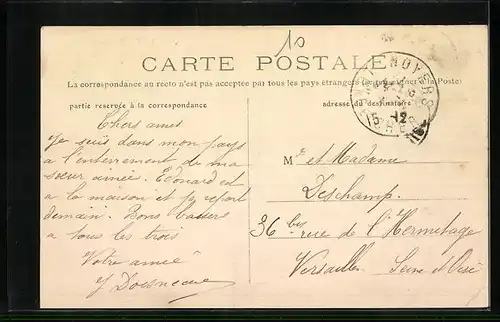 10
CARTE POSTALE
La correspondance au recto n'est pas acceptée par tous les pays étrangers (se renseigner à la Poste)
partie réservée à la correspondance
adresse du destinataire
NOYERS
15 12
CHER
Chers amis
Je suis dans mon pays
a l'enterrement de ma
sœur ainée. Edouard est
a la maison et repart
demain. Bons baisers
a tous les trois
Votre amie
Mr et Madame
Deschamp.
36 bis rue de l'Hermitage
Versailles Seine et Oise